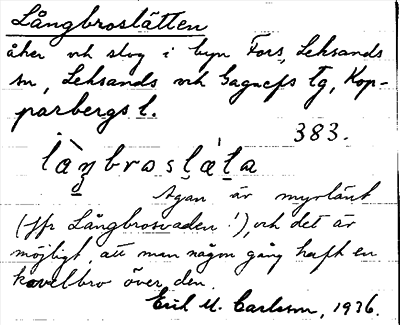 Långbroslätten
åker och slog i byn Fors, Leksands
sn, Leksands och Gagnefs tg, Kop-
parbergs l.
383.
làŋbroslàta
Ägan är myrlänt
(jfr Långbrosvaden!), och det är
möjligt, att man någon gång haft en
kavelbro över den.
Eric M. Carlsson, 1936.